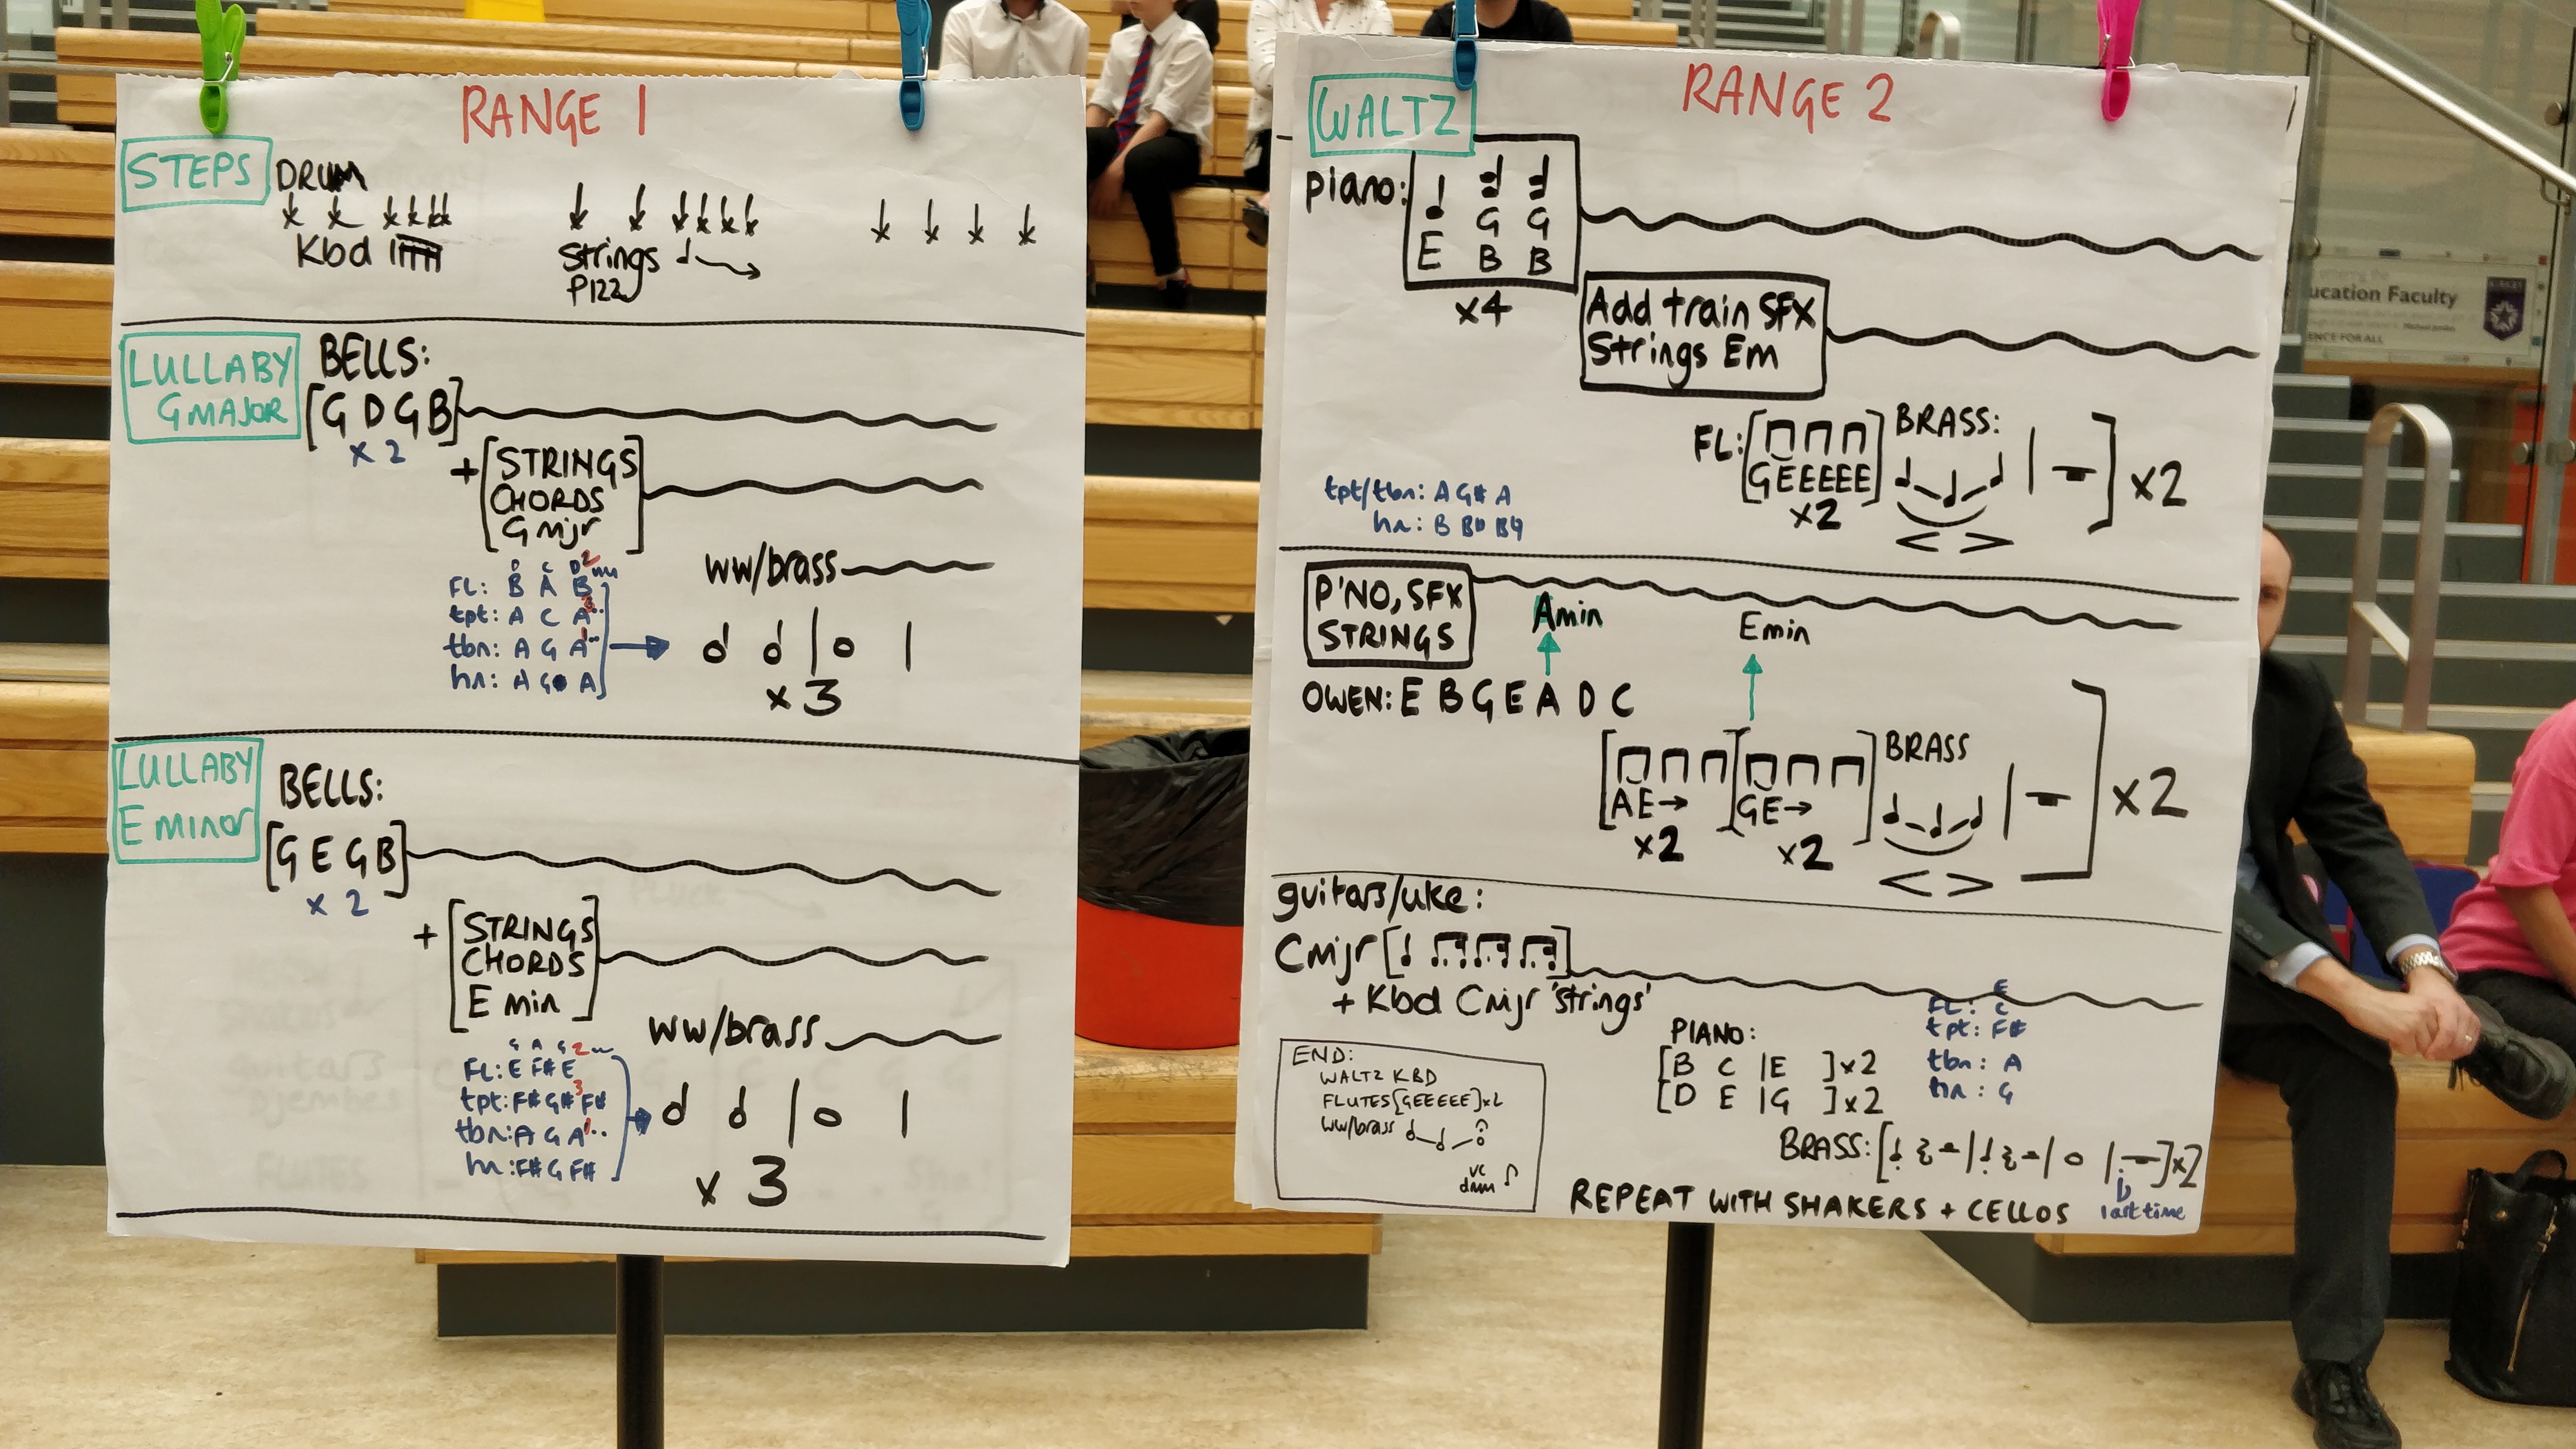 RANGE 1
STEPS
DRUM
Kbd
Strings
LULLABY
G MAJOR
BELLS:
[G D G B]
x 2
+ [STRINGS
CHORDS
G mjr]
ww/brass
D C D 2
FL: B A B
tpt: A C A 3
tbn: A G A 1
hn: A G A
x 3
LULLABY
E minor
BELLS:
[G E G B]
x 2
+ [STRINGS
CHORDS
E min]
ww/brass
G A G 2
FL: E F# E
tpt: F# G# F# 3
tbn: A G A 1
hn: F# G F#
x 3
RANGE 2
WALTZ
piano:
G G
E B B
x4
Add train SFX
Strings Em
FL: [GEEEEE]
x2
BRASS:
x2
tpt/tbn: A G# A
hn: B Bb B♮
P'NO, SFX
STRINGS
Amin
Emin
OWEN: E B G E A D C
[AE→
x2
][GE→
x2
]
BRASS
x2
guitars/uke:
Cmjr
+ Kbd Cmjr 'strings'
PIANO:
[B C |E ]x2
[D E |G ]x2
E
FL: C
tpt: F#
tbn: A
hn: G
BRASS:
x2
last time
REPEAT WITH SHAKERS + CELLOS
END:
WALTZ KBD
FLUTES [GEEEEE]x2
ww/brass
vc
drum
ucation Faculty
ENCE FOR ALL